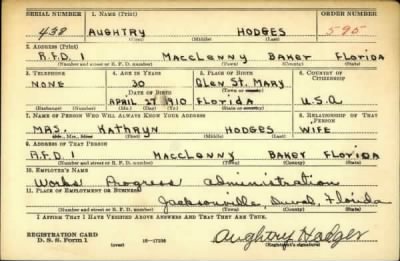 SERIAL NUMBER 1. NAME (Print) ORDER NUMBER
438 AUGHTRY HODGES 595
(First) (Middle) (Last)
2. ADDRESS (Print)
R.F.D. 1 MACCLENNY BAKER FLORIDA
(Number and street or R. F. D. number) (Town) (County) (State)
3. TELEPHONE 4. AGE IN YEARS 5. PLACE OF BIRTH 6. COUNTRY OF CITIZENSHIP
NONE 30 Glen St. Mary
DATE OF BIRTH (Town or county)
APRIL 27 1910 FLORIDA U.S.A
(Mo.) (Day) (Yr.) (State or country)
7. NAME OF PERSON WHO WILL ALWAYS KNOW YOUR ADDRESS 8. RELATIONSHIP OF THAT PERSON
MRS. Kathryn HODGES WIFE
(Mr., Mrs., Miss) (First) (Middle) (Last)
9. ADDRESS OF THAT PERSON
R.F.D. 1 MACCLENNY BAKER FLORIDA
(Number and street or R. F. D. number) (Town) (County) (State)
10. EMPLOYER'S NAME
Works Progress Administration
11. PLACE OF EMPLOYMENT OR BUSINESS
Jacksonville, Duval, Florida
(Number and street or R. F. D. number) (Town) (County) (State)
I AFFIRM THAT I HAVE VERIFIED ABOVE ANSWERS AND THAT THEY ARE TRUE.
REGISTRATION CARD
D. S. S. Form 1 (over) 16—17105 Aughtry Hodges
(Registrant's signature)